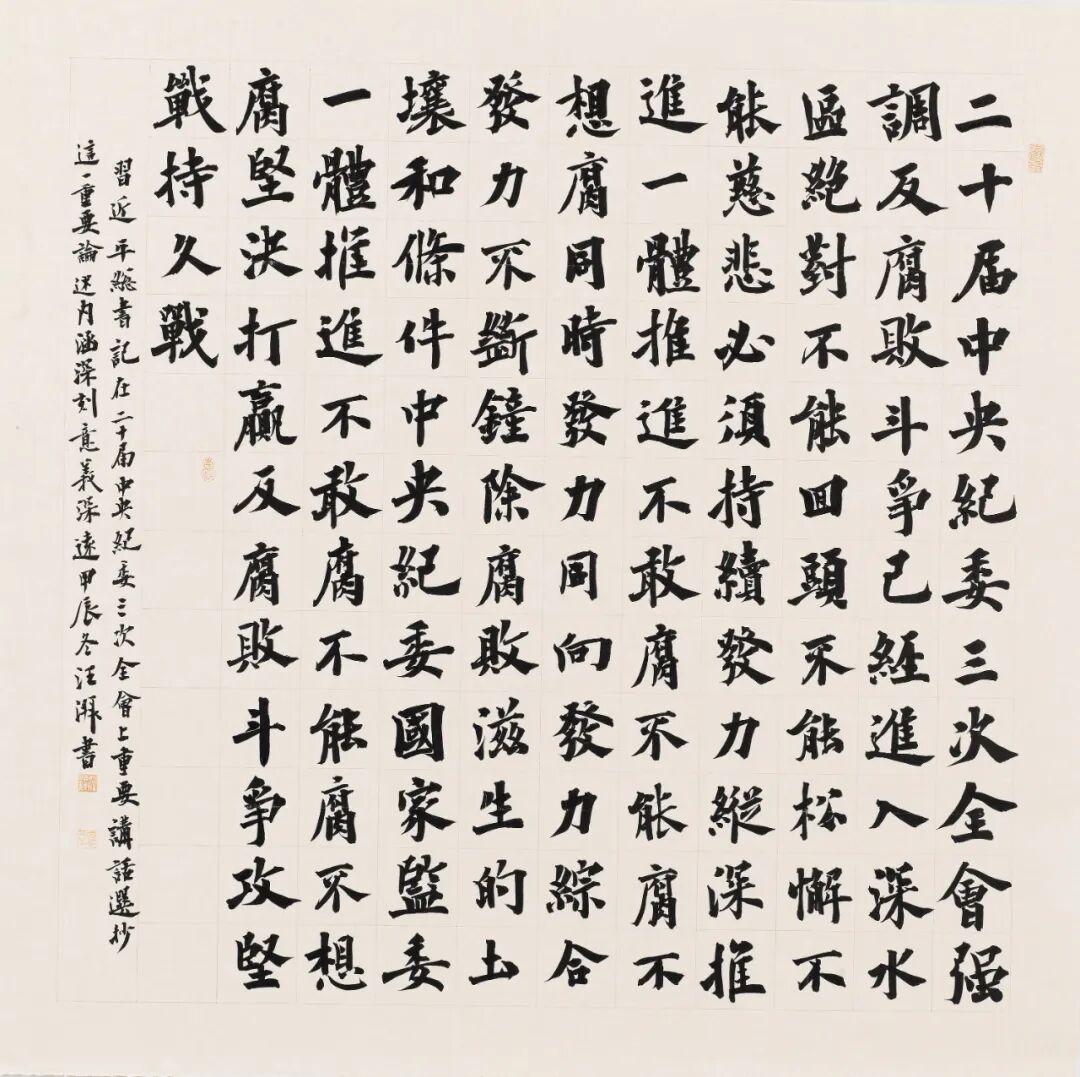 二十届中央紀委三次全會强
調反腐敗斗爭已經進入深水
區絶對不能回頭不能松懈不
能慈悲必須持續發力縱深推
進一體推進不敢腐不能腐不
想腐同時發力同向發力綜合
發力不斷鏟除腐敗滋生的土
壤和條件中央紀委國家監委
一體推進不敢腐不能腐不想
腐堅決打贏反腐敗斗爭攻堅
戰持久戰
習近平總書記在二十届中央紀委三次全會上重要講話選抄
這一重要論述内涵深刻意義深遠甲辰冬汪湃書